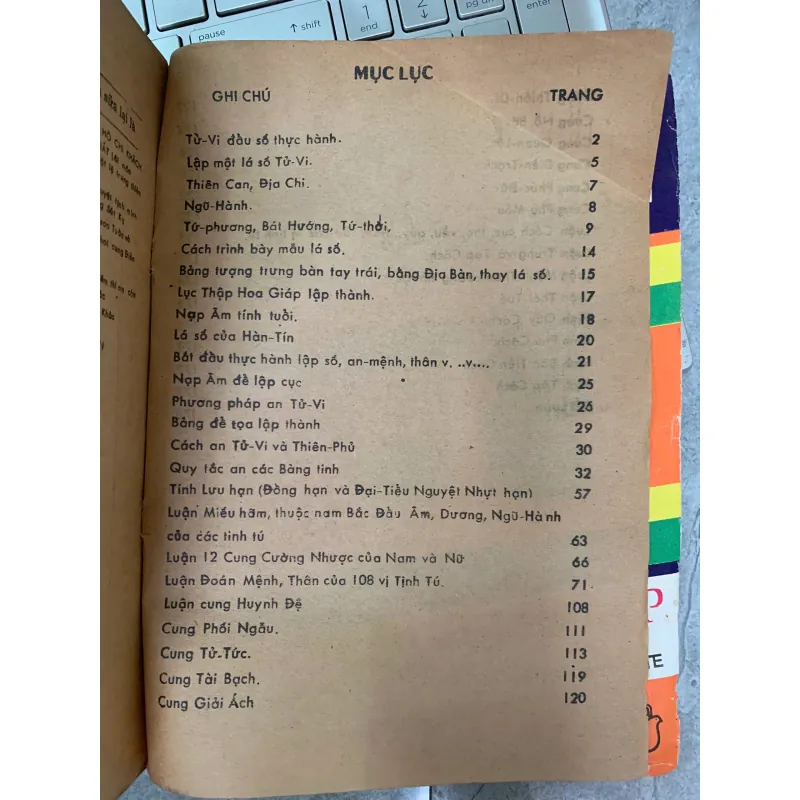 pause
shift
enter
sửa lại là
MỤC LỤC
GHI CHÚ TRANG
Tử-Vi đầu số thực hành. 2
Lập một lá số Tử-Vi. 5
Thiên Can, Địa Chi. 7
Ngũ-Hành. 8
Tứ-phương, Bát Hướng, Tứ-thời, 9
Cách trình bày mẫu lá số. 14
Bảng tượng trưng bàn tay trái, bằng Địa Bàn, thay lá số. 15
Lục Thập Hoa Giáp lập thành. 17
Nạp Âm tính tuổi. 18
Lá số của Hàn-Tín 20
Bắt đầu thực hành lập số, an-mệnh, thân v. ..v.... 21
Nạp Âm để lập cục 25
Phương pháp an Tử-Vi 26
Bảng để tọa lập thành 29
Cách an Tử-Vi và Thiên-Phủ 30
Quy tắc an các Bàng tinh 32
Tính Lưu hạn (Đồng hạn và Đại-Tiểu Nguyệt Nhựt hạn) 57
Luận Miếu hãm, thuộc nam Bắc Đẩu Âm, Dương, Ngũ-Hành
của các tinh tú 63
Luận 12 Cung Cường Nhược của Nam và Nữ 66
Luận Đoán Mệnh, Thân của 108 vị Tinh Tú. 71
Luận cung Huynh Đệ 108
Cung Phối Ngẫu. 111
Cung Tử-Tức. 113
Cung Tài Bạch. 119
Cung Giải Ách 120